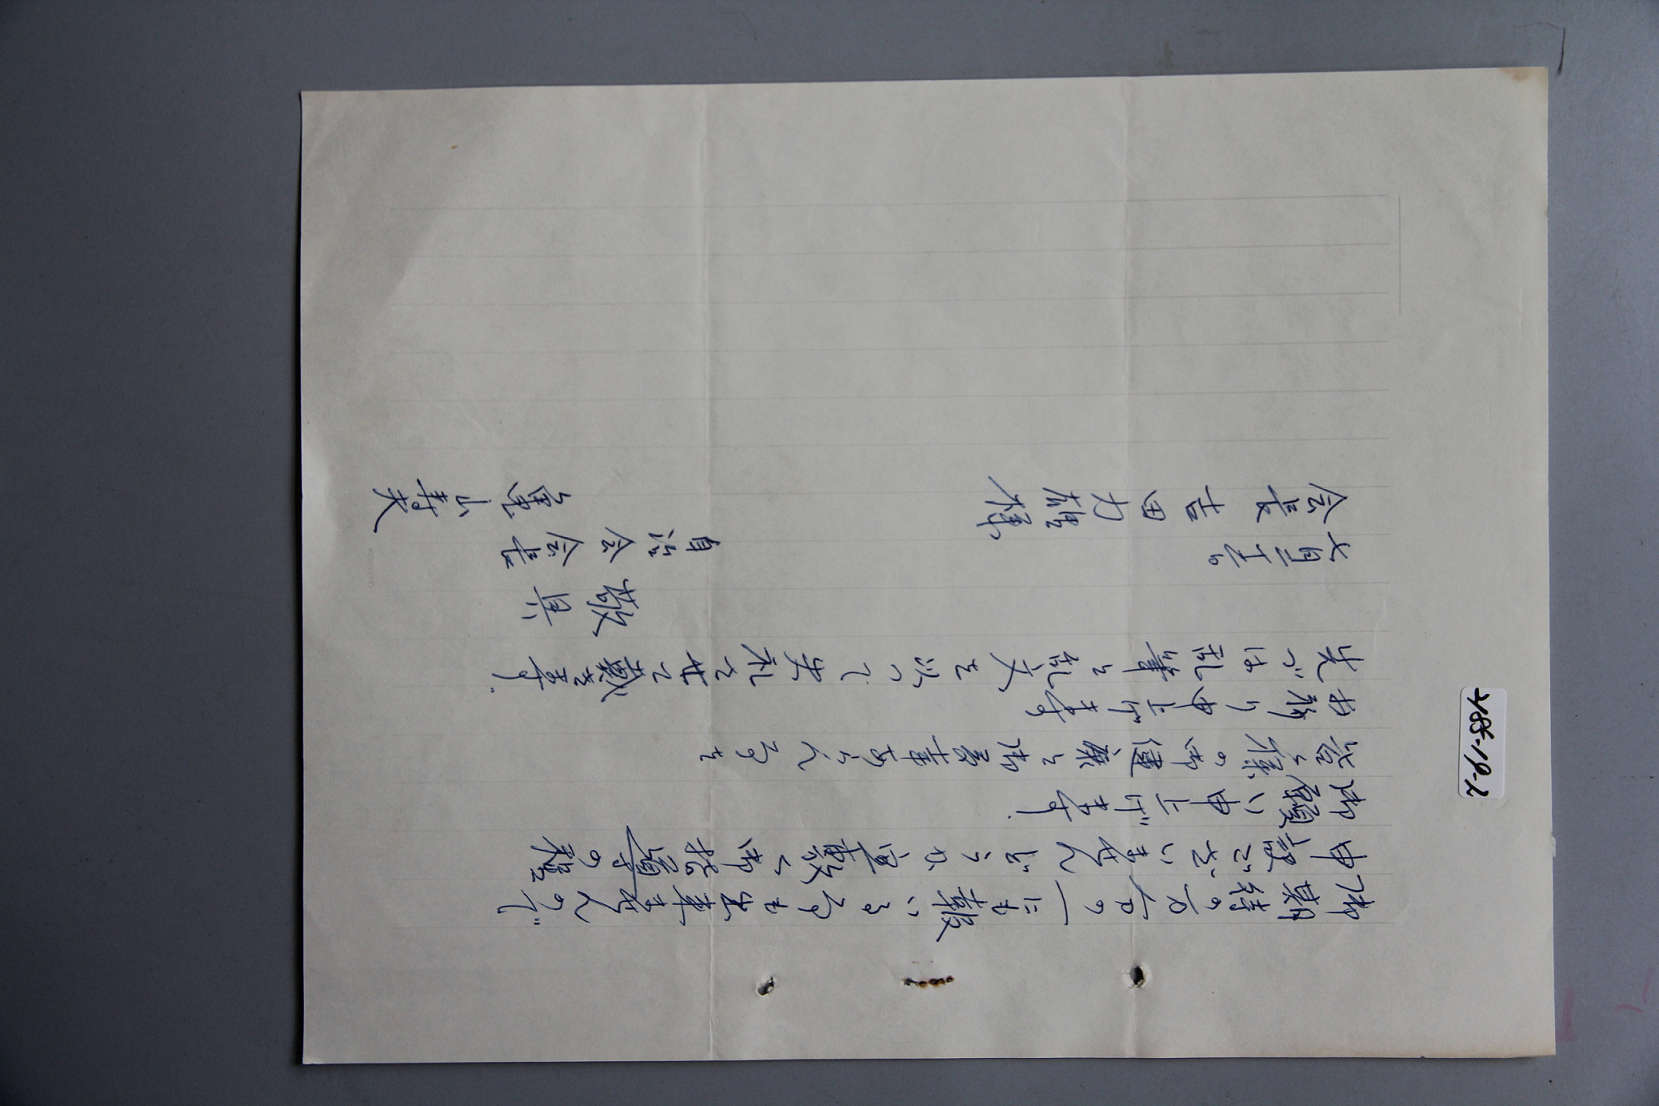 御期待の万分の一にも報いる事も出来ませんので
申訳ございませんどうか宜敷く御指導の程
御願い申上げます.
皆々様の御健康と御多幸あらん事を
お祈り申上げます
先づは乱筆と乱文を以って失礼させて戴きます.
敬具
自治会会長
会長 吉田力雄様
山寿夫
485-19-2